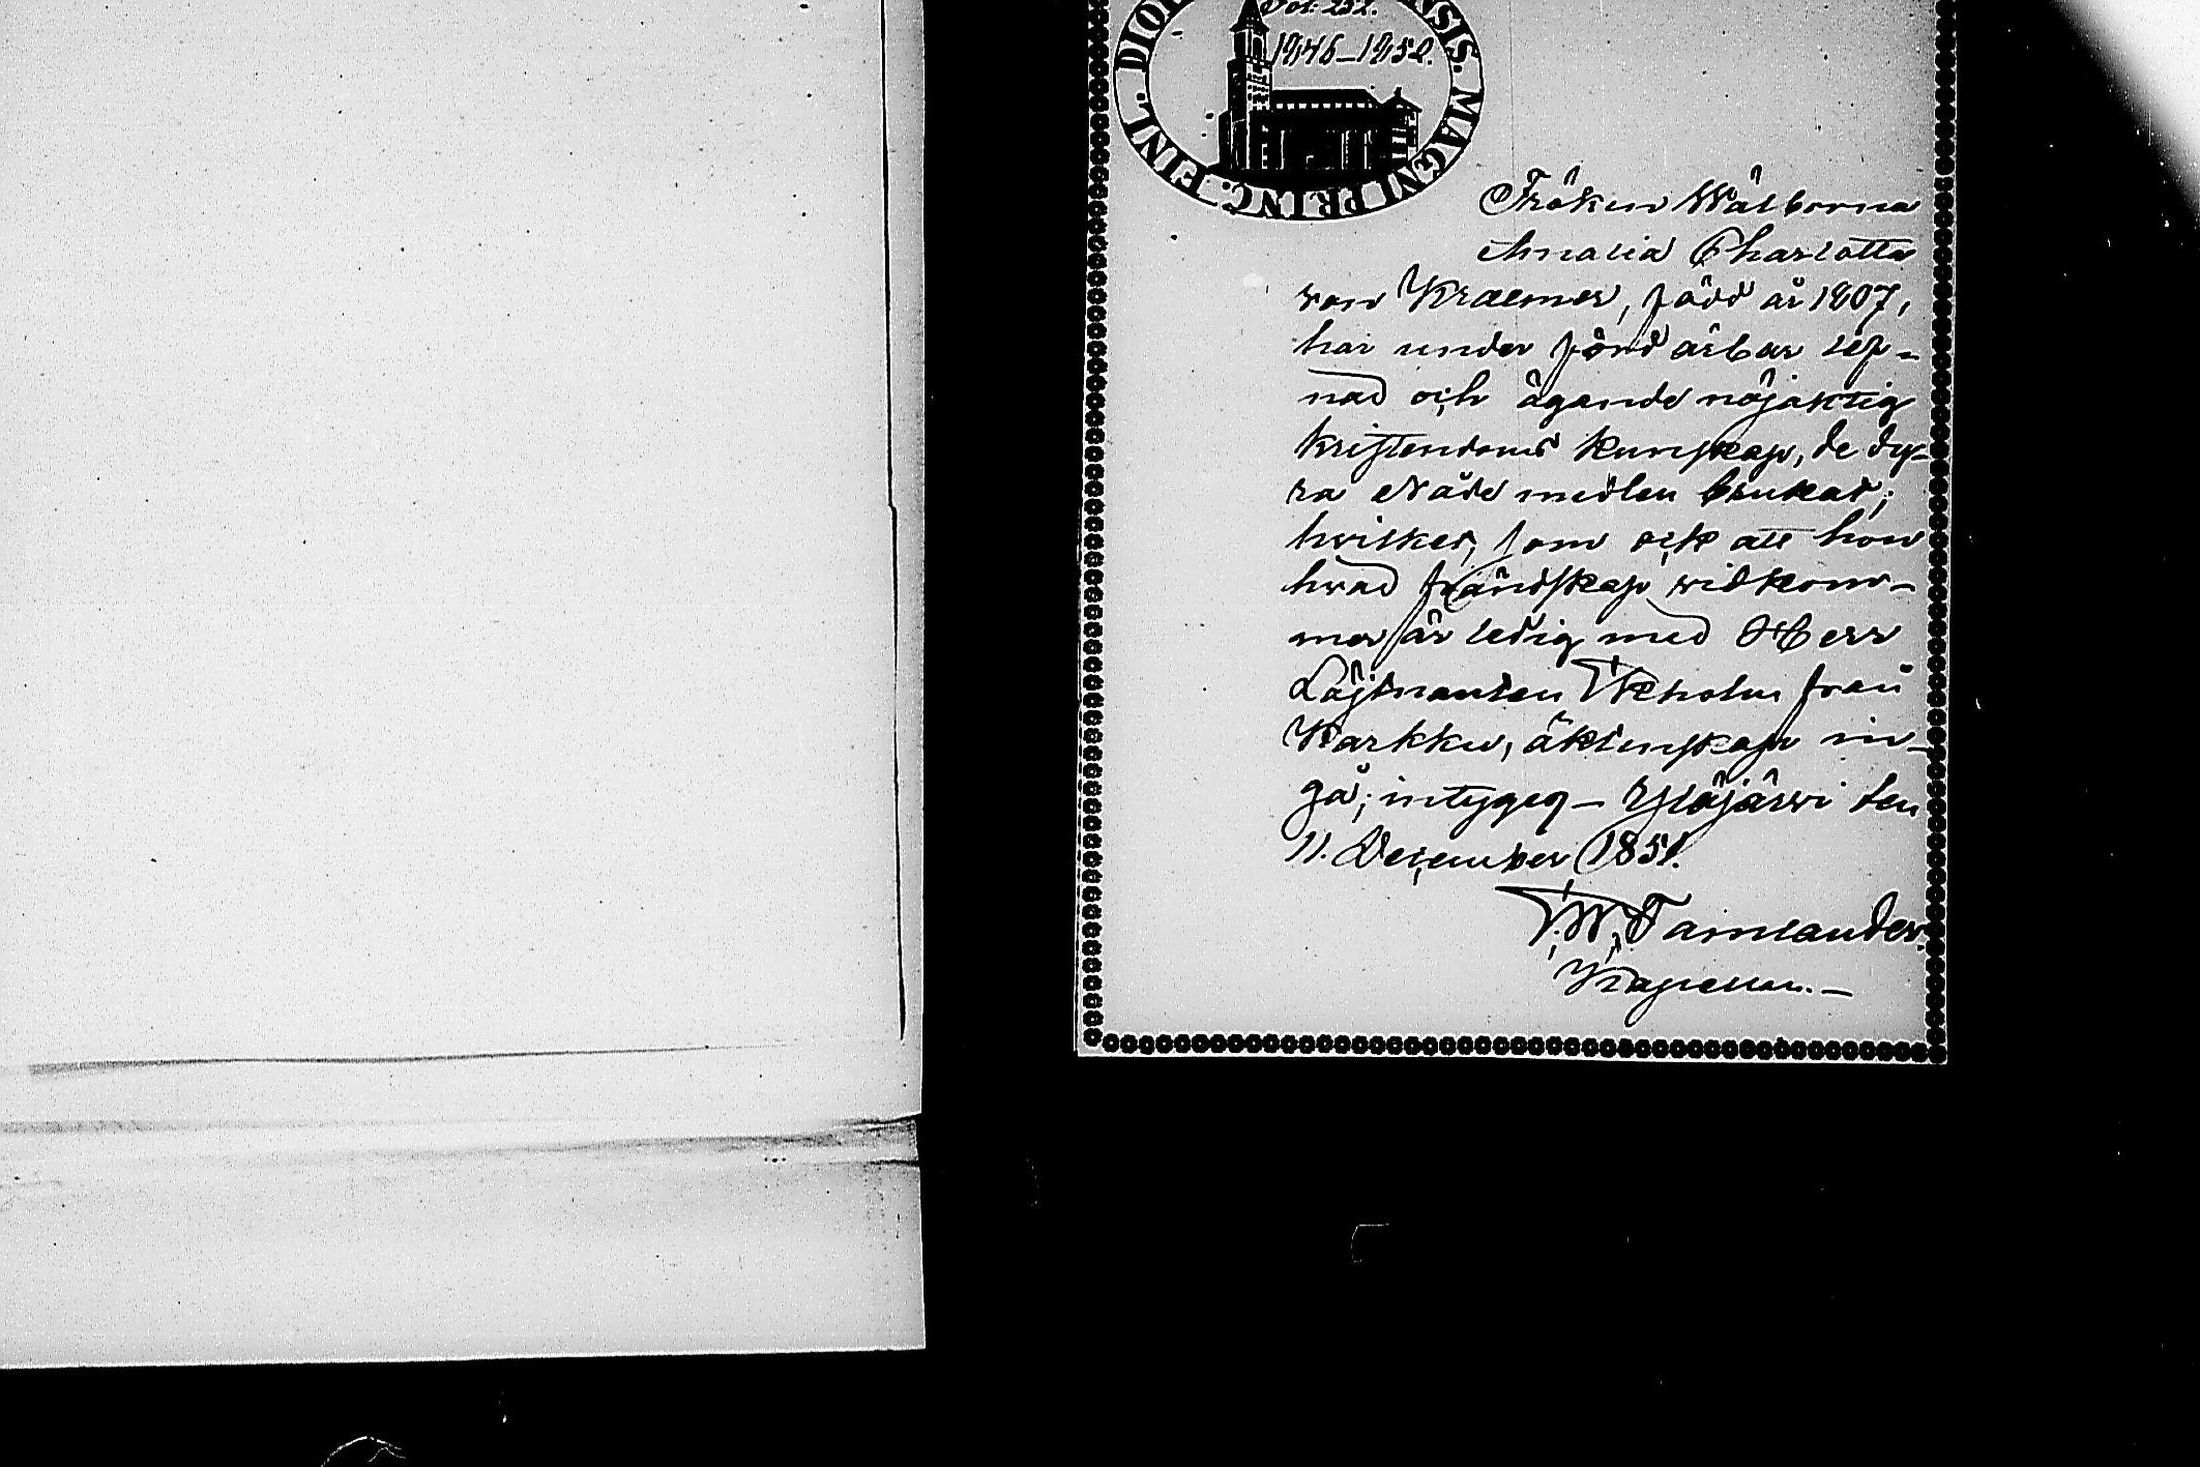 Fol. 252.
1846–1852.
FINL. DIOE NSIS. MAGNI PRINC.
Fröken Wälborna
Amalia Charlotta
von Kraemer, född år 1807,
har under förd ärbar lef-
nad och ägande nöjaktig
kristendoms kunskap, de dy-
ra Nåde medlen brukat;
hvilket, som ock att hon
hvad frändskap widkom-
mer, är ledig med Herr
Löjtnanten Ekholm från
Karkku, äktenskap in-
gå; intygeg— Ylöjärvi den
11. December 1851.
Tamlander.
Kapellan.—